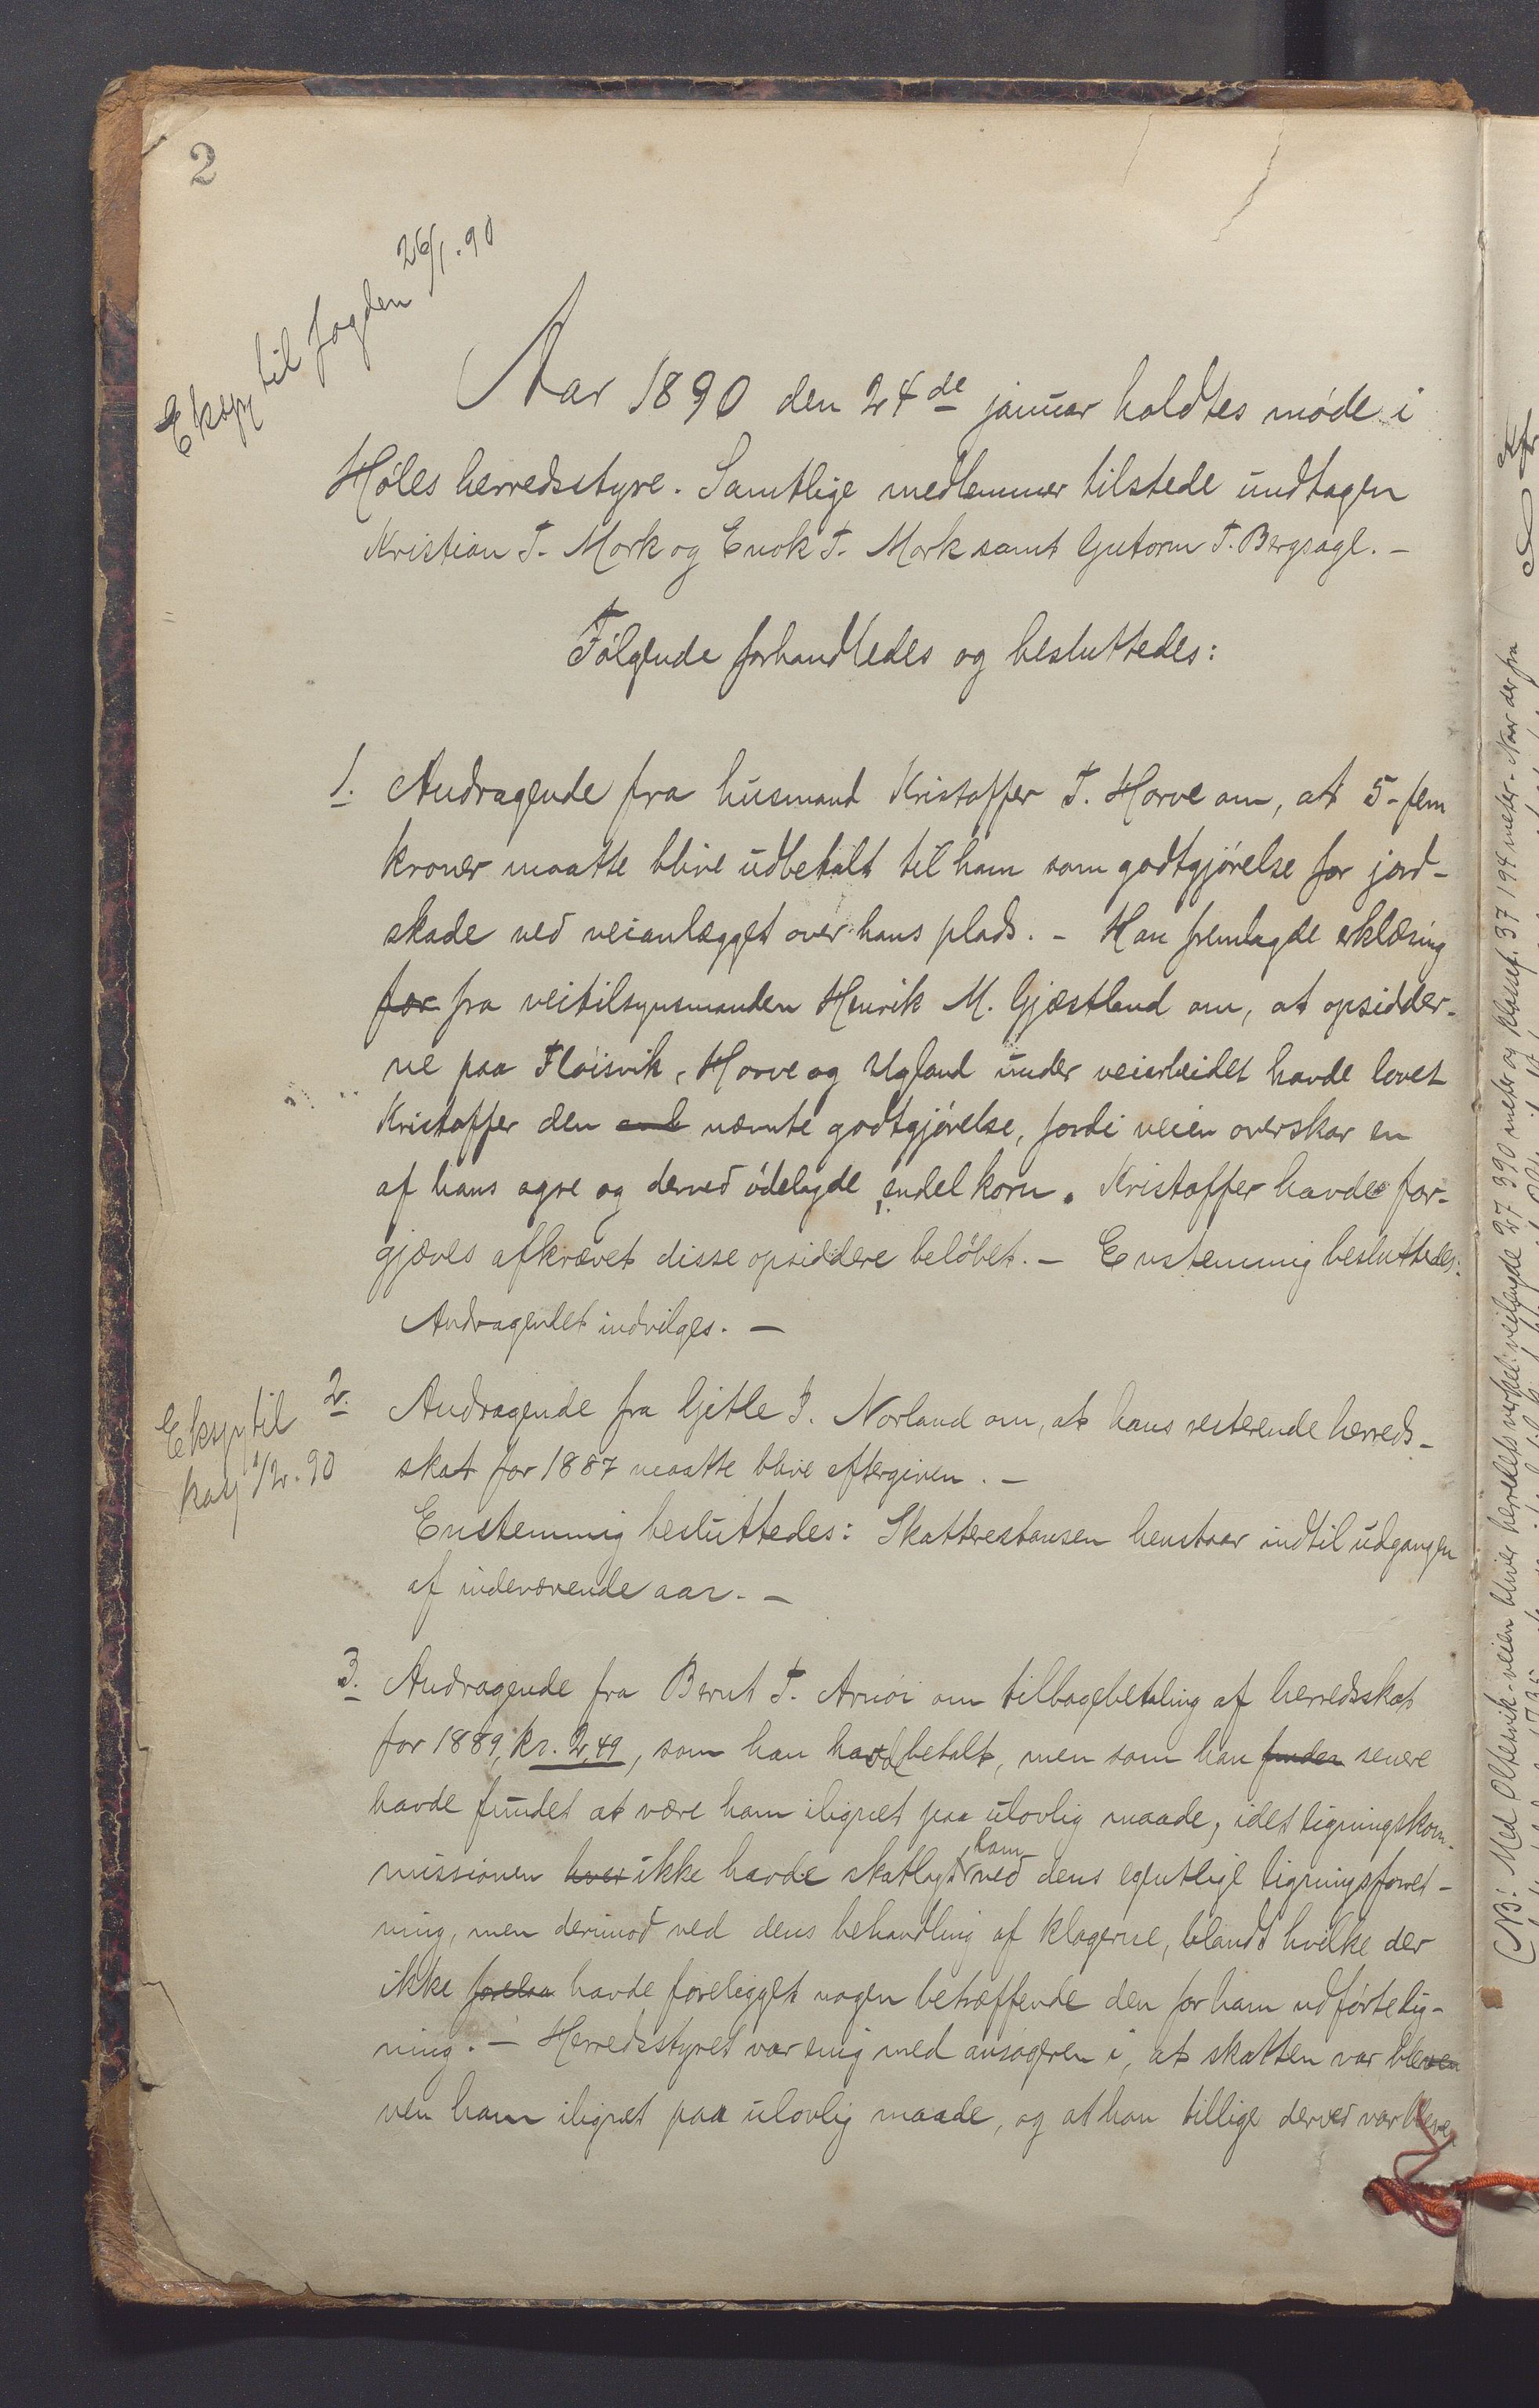 2
Eksp til fogden 26/1.90
Aar 1890 den 24de januar holdtes møde i
Høles herredsstyre. Samtlige medlemmer tilstede undtagen
Kristian T. Mork og Enok T. Mork samt Gutorm T. Bergsagl. -
Følgende forhandledes og besluttedes:
1. Andragende fra husmand Kristoffer T. Horve om, at 5- fem
kroner maatte blive udbetalt til ham som godtgjørelse for jord-
skade ved veianlægget over hans plads. - Han fremlagde erklæring
for fra veitilsynsmanden Henrik M. Gjæstland om, at opsidder-
ne paa Fløisvik, Horve og Ugland under veiarbeidet havde lovet
Kristoffer den nævnte godtgjørelse, fordi veien overskar en
af hans agre og derved ødelagde endel korn. Kristoffer havde for-
gjæves afkrævet disse opsiddere beløbet. - Enstemmig besluttedes:
Andragendet indvilges. -
2. Andragende fra Gitle I. Norland om, at hans resterende herreds-
skat for 1887 maatte blive eftergiven. -
Eksp til
1/2.90
Enstemmig besluttedes: Skatterestansen henstaar indtil udgangen
af indeværende aar. -
3. Andragende fra Bernt T. Arnøi om tilbagebetaling af herredsskat
for 1889, kr. 2,49, som han havde betalt, men som han finder senere
havde fundet at være ham ilignet paa ulovlig maade, idet ligningskom-
missionen ikke havde skatlagt ham ved dens egentlige ligningsforret-
ning, men derimod ved dens behandling af klagerne, blandt hvilke der
ikke forelaa havde foreligget nogen betræffende den for ham udførte lig-
ning. - Herredsstyret var enig med ansøgeren i, at skatten var bleven
ven ham ilignet paa ulovlig maade, og at han tillige derved var bleve
(NB! Med Oltesvik-veien bliver herredets veilængde 27 390 meter og klassef. 37 194 meter. Naar der fra